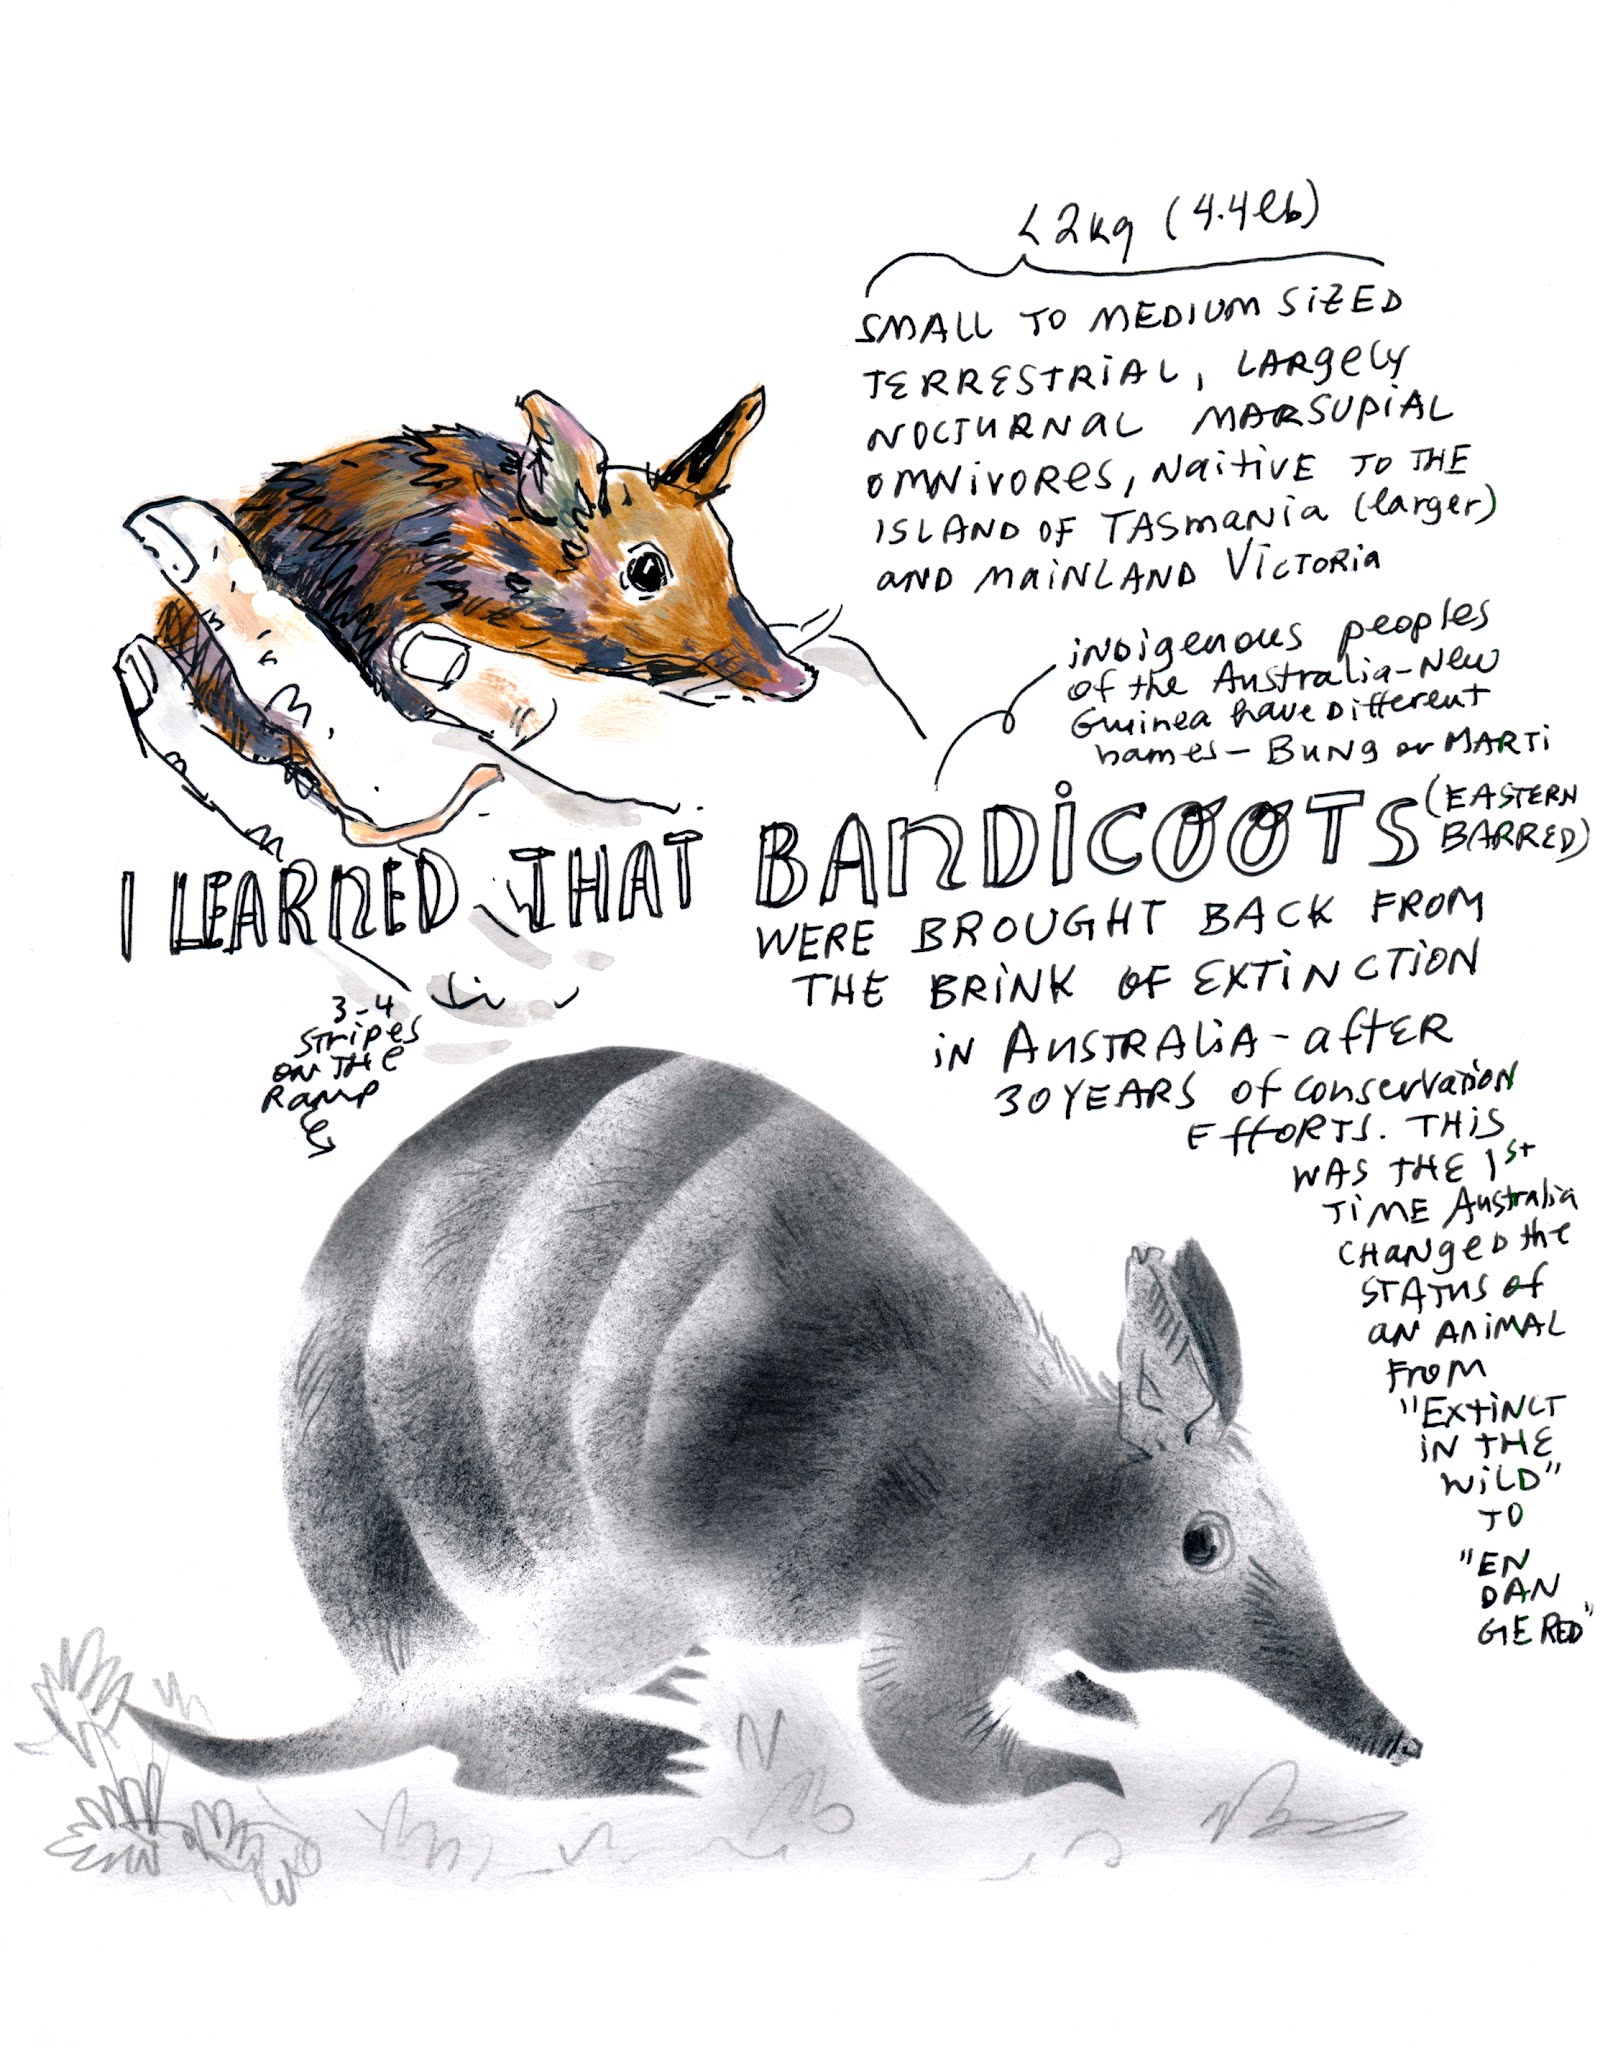 <2kg (4.4lb)
SMALL TO MEDIUM SIZED
TERRESTRIAL, LARGELY
NOCTURNAL MARSUPIAL
OMNIVORES, NAITIVE TO THE
ISLAND OF TASMANIA (larger)
AND MAINLAND VICTORIA
INDIGENOUS peoples
of the Australia-New
Guinea have Different
names - BUNG or MARTI
I LEARNED THAT BANDICOOTS (EASTERN
BARRED)
WERE BROUGHT BACK FROM
THE BRINK OF EXTINCTION
IN AUSTRALIA - AFTER
30 YEARS of conservation
EFFORTS. THIS
WAS THE 1st
TIME Australia
CHANGED the
STATUS of
AN ANIMAL
FROM
"EXTINCT
IN THE
WILD"
TO
"EN
DAN
GERED"
3-4
STRIPES
ON THE
RAMP